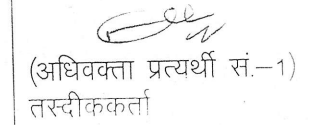 (अधिवक्ता प्रत्यर्थी सं.–1)
तस्दीककर्ता